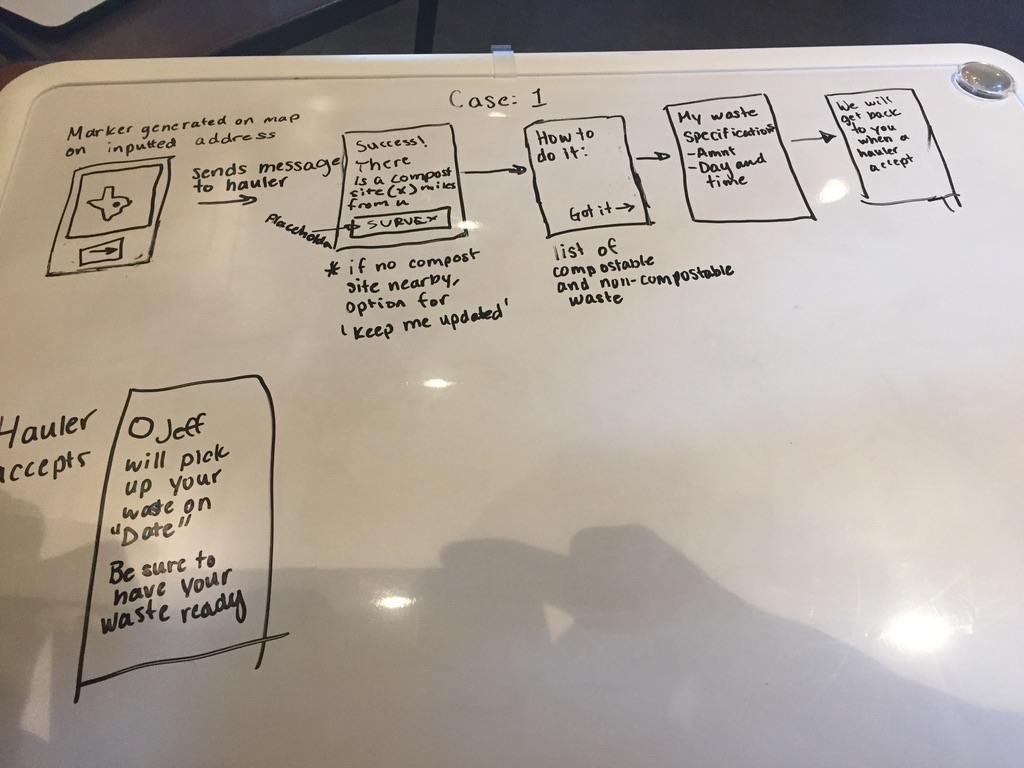 Case: 1
Marker generated on map
on inputted address
sends message
to hauler
Success!
There
is a compost
site (x) miles
from u
SURVEY
Placeholder
* if no compost
site nearby,
option for
'keep me updated'
How to
do it:
Got it →
list of
compostable
and non-compostable
waste
My waste
specification
- Amnt
- Day and
time
We will
get back
to you
when a
hauler
accept
Hauler
accepts
Jeff
will pick
up your
waste on
"Date"
Be sure to
have your
waste ready